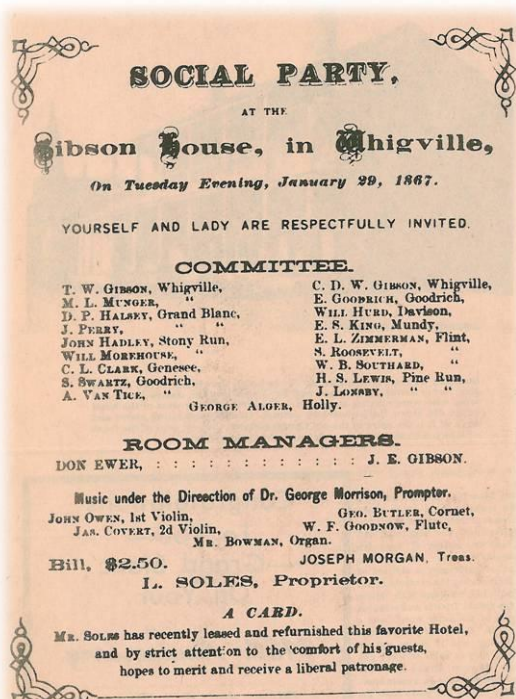 SOCIAL PARTY,
AT THE
Gibson House, in Whigville,
On Tuesday Evening, January 29, 1867.
YOURSELF AND LADY ARE RESPECTFULLY INVITED.
COMMITTEE.
T. W. GIBSON, Whigville,
M. L. MUNGER, "
D. P. HALSEY, Grand Blanc,
J. PERRY, " "
JOHN HADLEY, Stony Run,
WILL MOREHOUSE, "
C. L. CLARK, Genesee,
S. SWARTZ, Goodrich,
A. VAN TICE, "
C. D. W. GIBSON, Whigville,
E. GOODRICH, Goodrich,
WILL HURD, Davison,
E. S. KING, Mundy,
E. L. ZIMMERMAN, Flint,
S. ROOSEVELT, "
W. B. SOUTHARD, "
H. S. LEWIS, Pine Run,
J. LONSBY, " "
GEORGE ALGER, Holly.
ROOM MANAGERS.
DON EWER, : : : : : : : : : : : : J. E. GIBSON.
Music under the Direection of Dr. George Morrison, Prompter.
JOHN OWEN, 1st Violin, GEO. BUTLER, Cornet,
JAS. COVERT, 2d Violin, W. F. GOODNOW, Flute,
MR. BOWMAN, Organ.
Bill, $2.50. JOSEPH MORGAN, Treas.
L. SOLES, Proprietor.
A CARD.
MR. SOLES has recently leased and refurnished this favorite Hotel,
and by strict attention to the comfort of his guests,
hopes to merit and receive a liberal patronage.